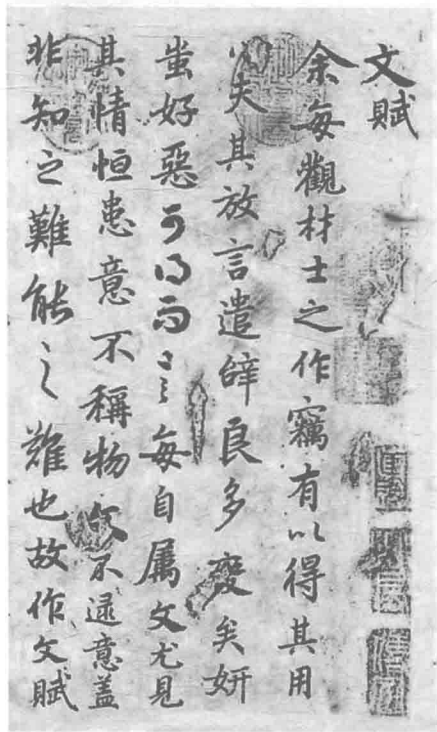 文賦
余每觀材士之作竊有以得其用
心夫其放言遣辭良多變矣妍
蚩好惡可得而言言每自属文尤見
其情恒患意不稱物文不逮意盖
非知之難能之難也故作文賦